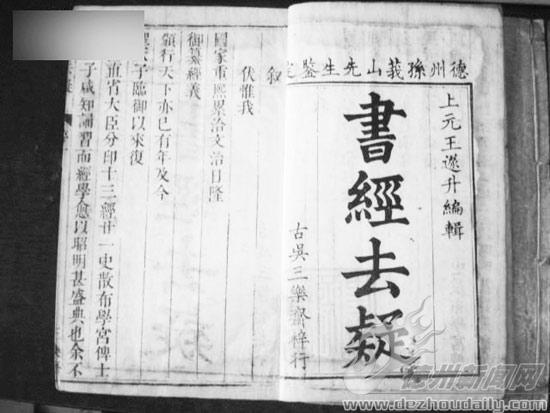 德州孫莪山先生鑒定
上元王遜升編輯
書經去疑
古吳三樂齋梓行
叙
伏惟我
國家重熙累洽文治日隆
御纂經義
頒行天下亦已有年及今
子臨御以來復
直省大臣分印十三經廿一史散布學宮俾士
子咸知誦習而經學愈以昭明甚盛典也余不
德州新闻网
www.dezhoudaily.com